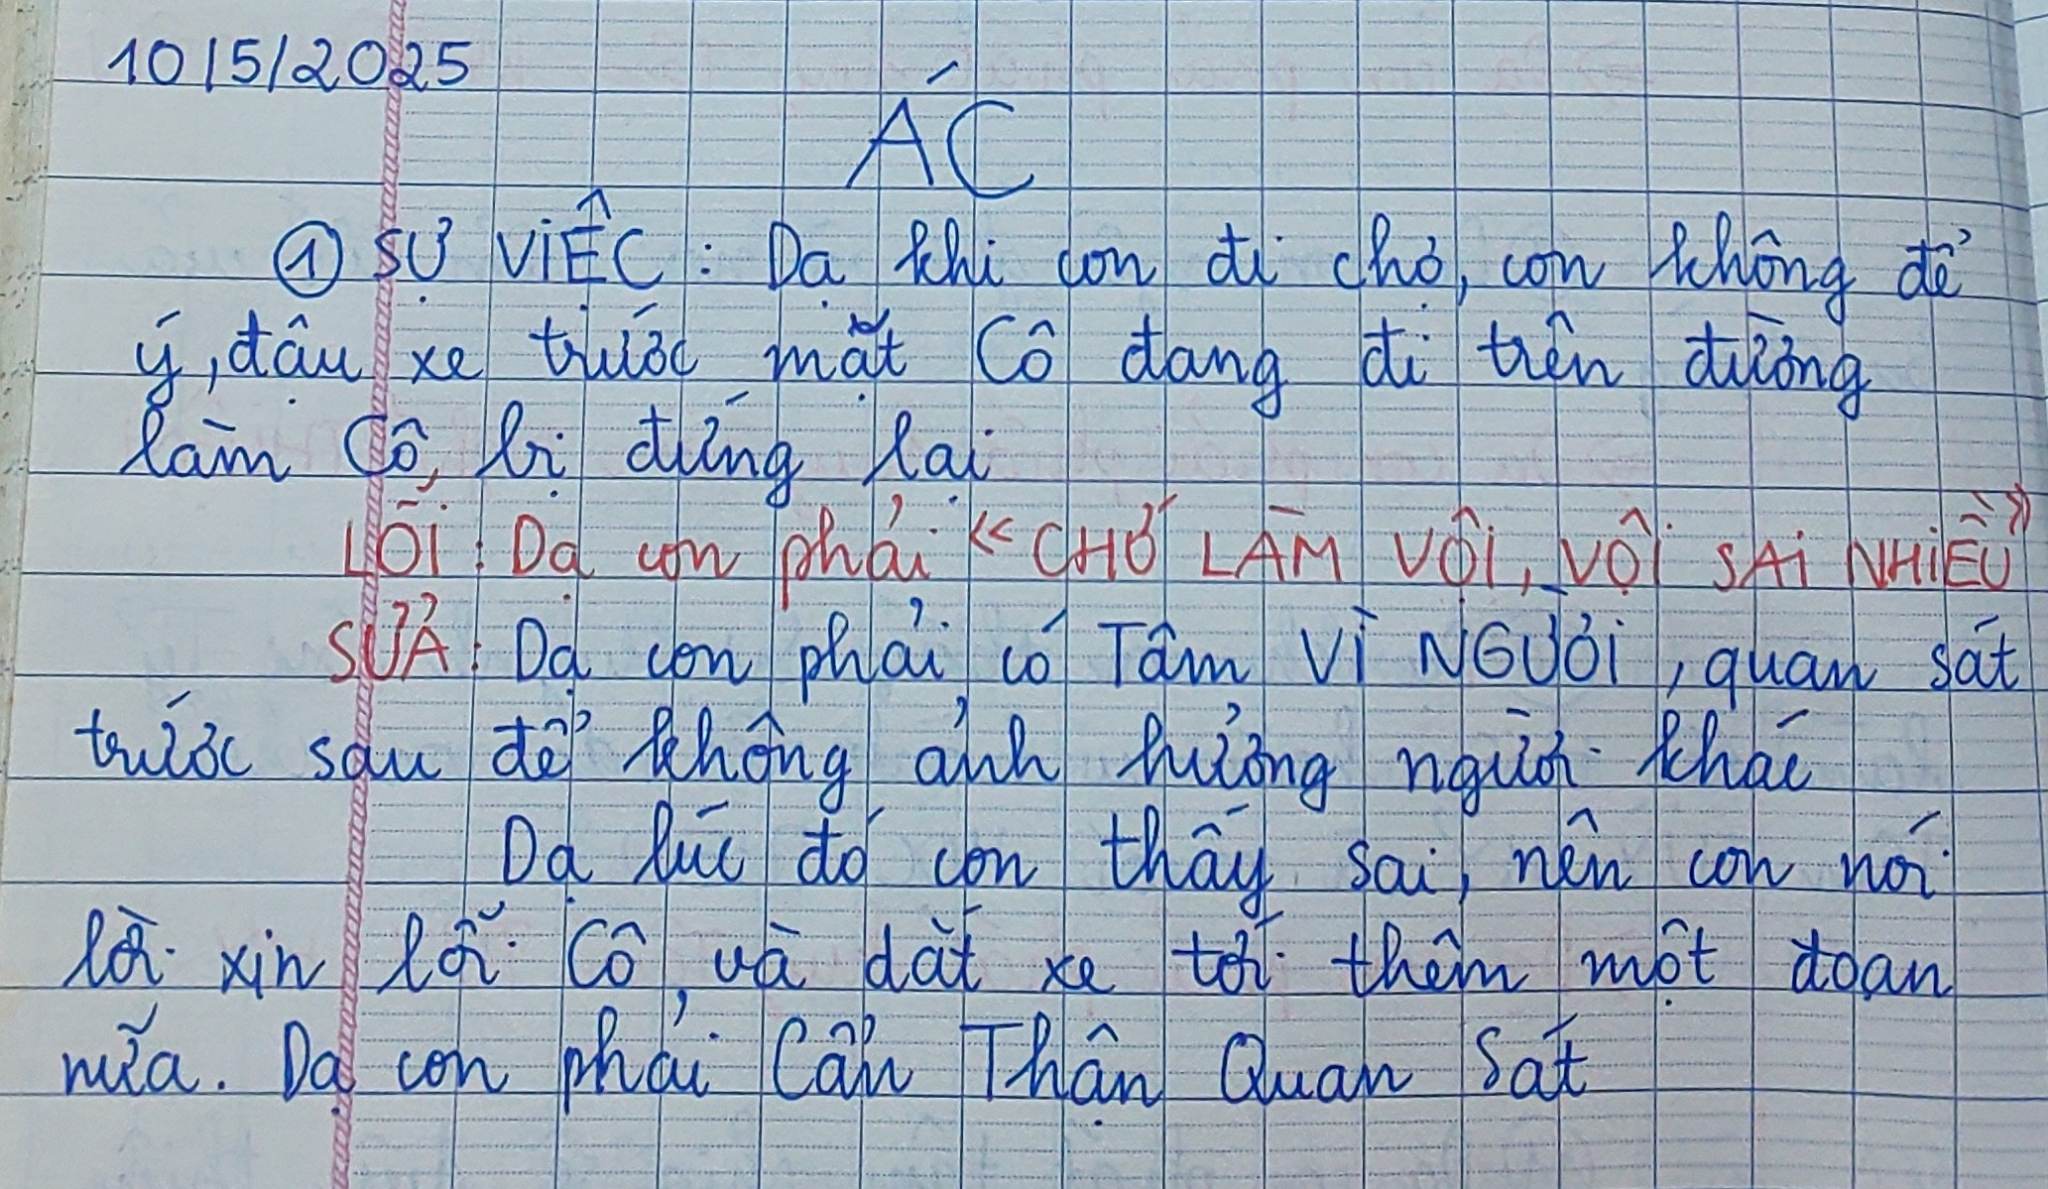 10/5/2025
ÁC
① SỰ VIỆC: Dạ khi con đi chợ, con không để
ý, đậu xe trước mặt Cô đang đi trên đường
làm Cô bị đứng lại
LỖI: Dạ con phải "CHỚ LÀM VỘI, VỘI SAI NHIỀU"
SỬA: Dạ con phải có Tâm VÌ NGƯỜI, quan sát
trước sau để không ảnh hưởng người khác
Dạ lúc đó con thấy sai, nên con nói
lời xin lỗi Cô và dắt xe tới thêm một đoạn
nữa. Dạ con phải Cẩn Thận Quan Sát